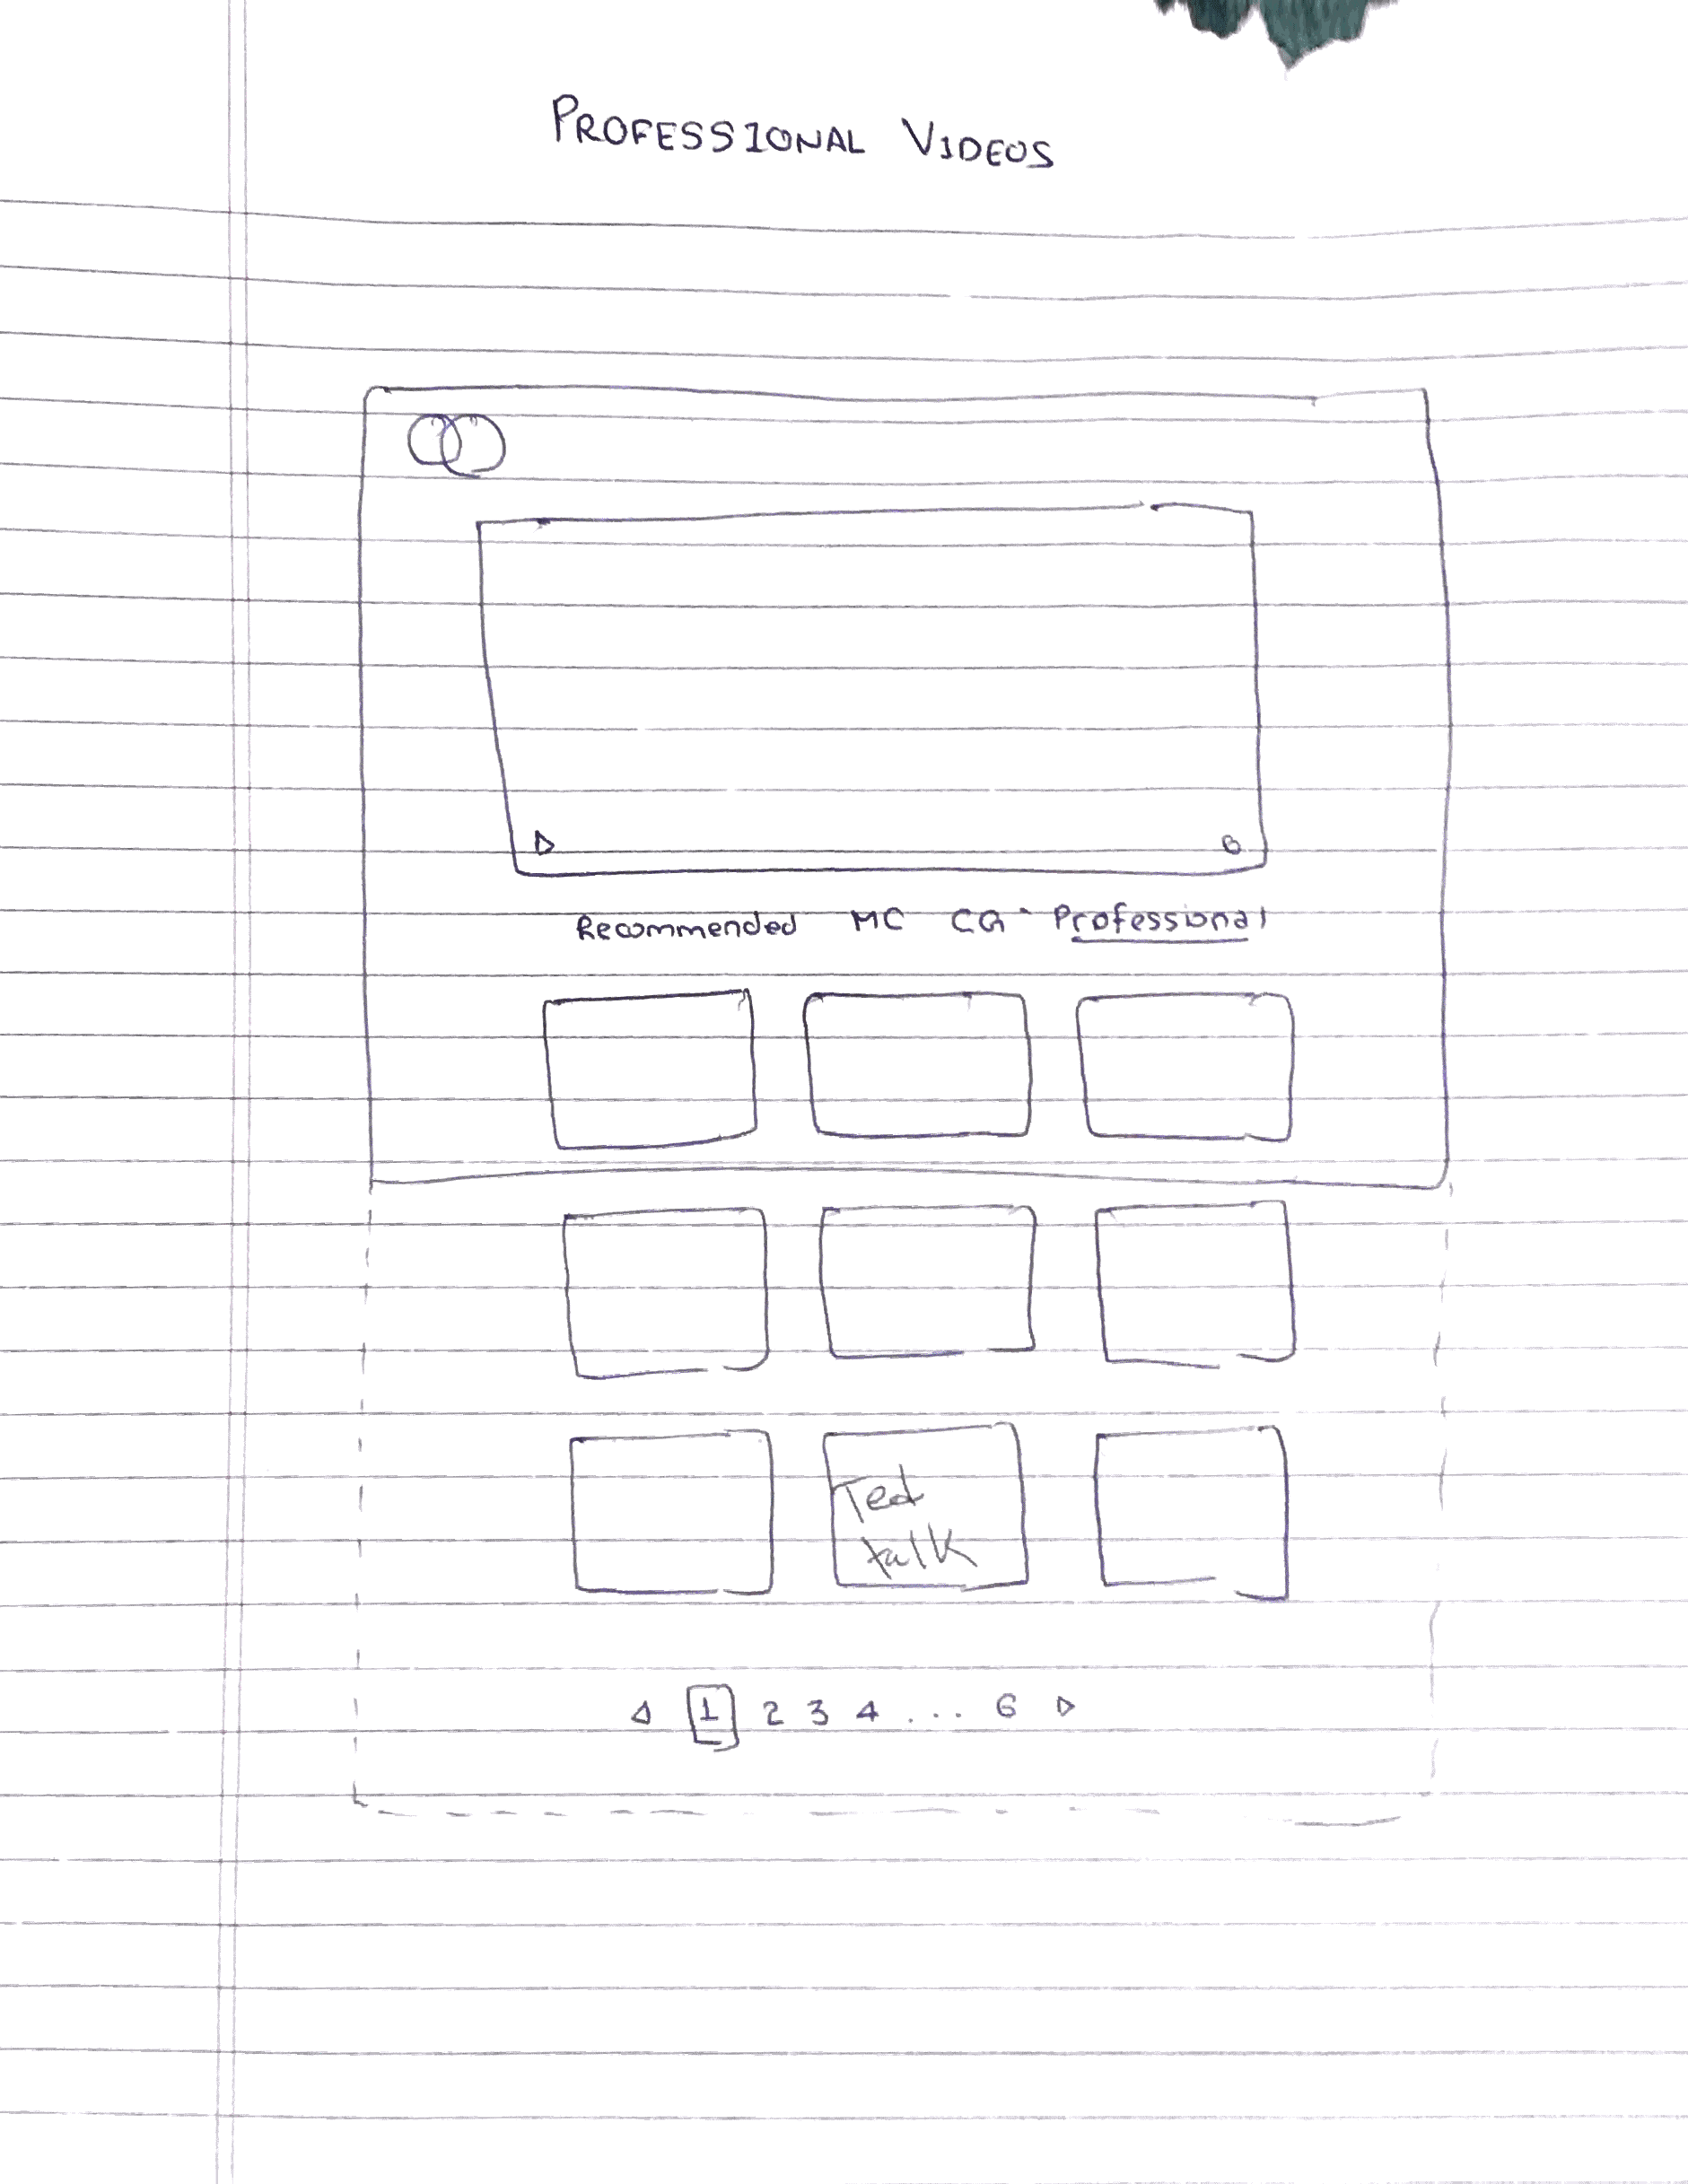 PROFESSIONAL VIDEOS
Recommended MC CG Professional
Ted
talk
1 2 3 4 ... 6